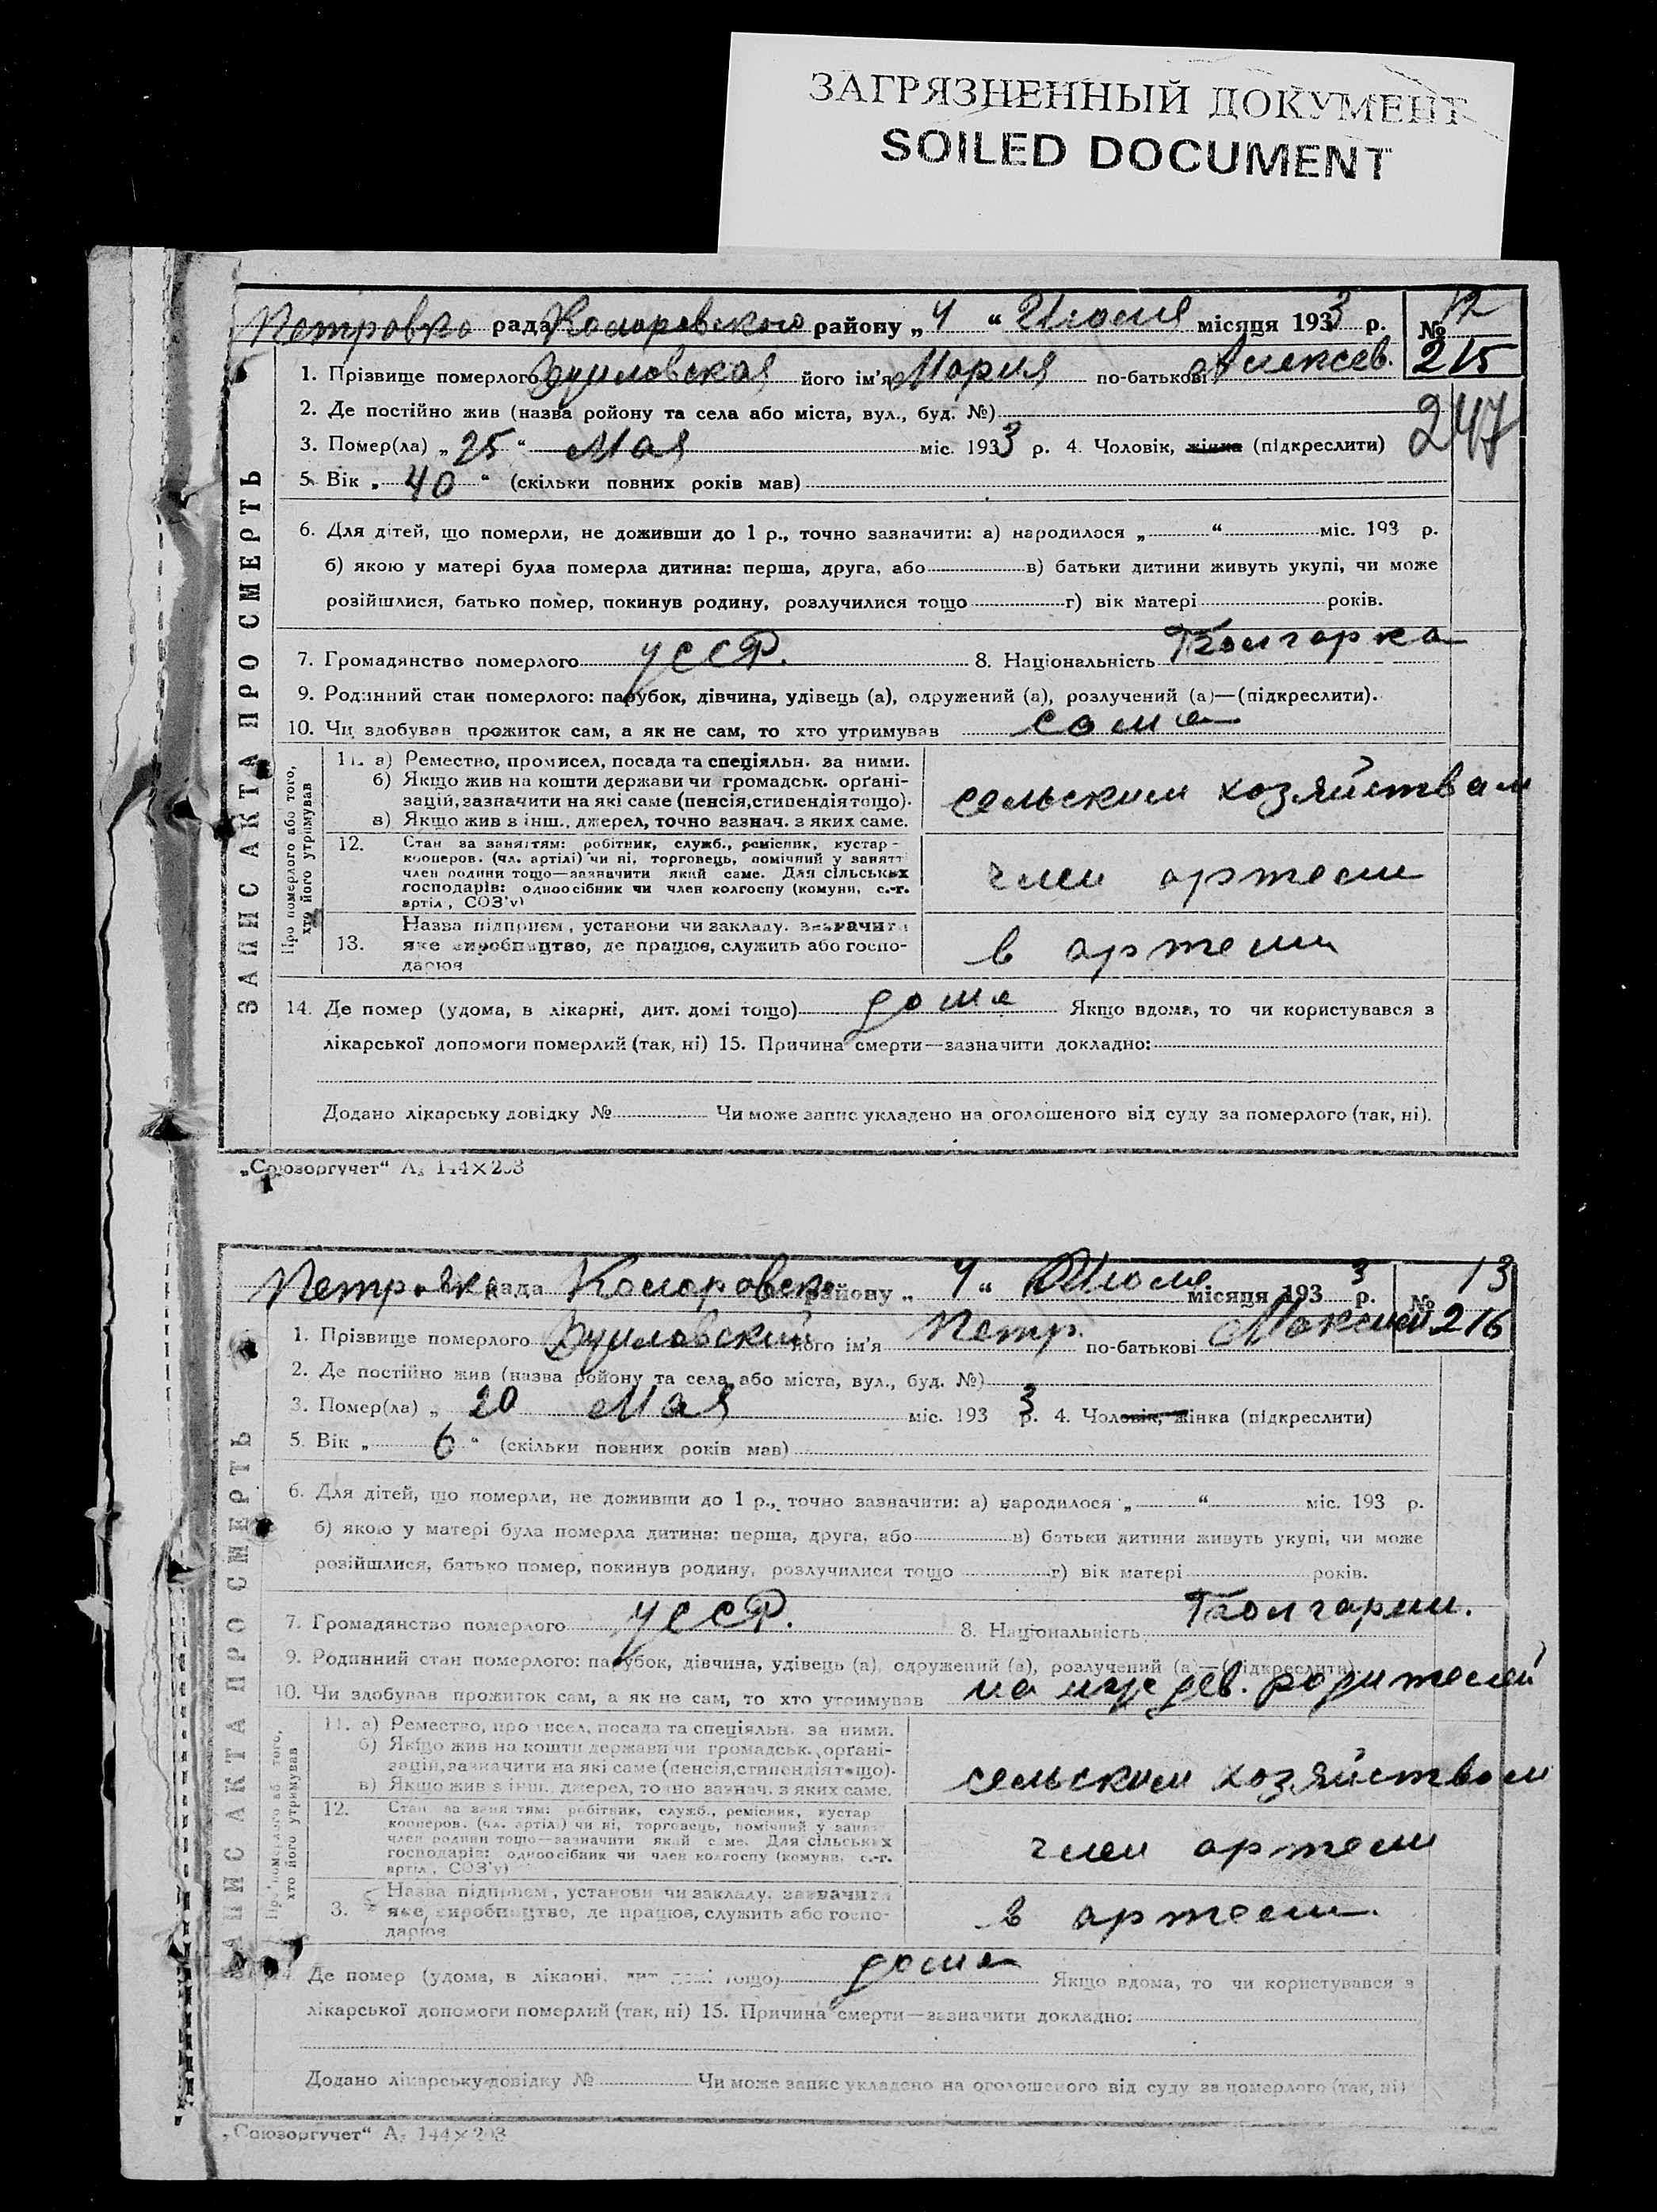 ЗАГРЯЗНЕННЫЙ ДОКУМЕНТ
SOILED DOCUMENT
ЗАПИС АКТА ПРО СМЕРТЬ
Петровка рада Коларовского району „4“ Июля місяця 1933 р. № 12
215
1. Прізвище померлого його ім'я Мария по-батькові Алексев.
2. Де постійно жив (назва ройону та села або міста, вул., буд. №)
247
3. Помер(ла) „25“ Мая міс. 1933 р. 4. Чоловік, жінка (підкреслити)
5. Вік „40“ (скільки повних років мав)
6. Для дітей, що померли, не доживши до 1 р., точно зазначити: а) народилося „ “ міс. 193 р.
б) якою у матері була померла дитина: перша, друга, або в) батьки дитини живуть укупі, чи може
розійшлися, батько помер, покинув родину, розлучилися тощо г) вік матері років.
7. Громадянство померлого УССР. 8. Національність Болгарка
9. Родинний стан померлого: парубок, дівчина, удівець (а), одружений (а), розлучений (а)—(підкреслити).
10. Чи здобував прожиток сам, а як не сам, то хто утримував сама
Про померлого або того,
хто його утримував
11. а) Ремество, промисел, посада та спеціяльн. за ними.
б) Якщо жив на кошти держави чи громадськ. орґані-
зацій, зазначити на які саме (пенсія, стипендія тощо).
в) Якщо жив з інш. джерел, точно зазнач. з яких саме.
сельским хозяйствам
12. Стан за заняттям: робітник, служб., ремісник, кустар-
кооперов. (чл. артілі) чи ні, торговець, помічний у занятт
член родини тощо—зазначити який саме. Для сільських
господарів: одноосібник чи член колгоспу (комуни, с.-г.
артіл, СОЗ'у)
член артели
13. Назва підприєм, установи чи закладу. зазначити
яке виробництво, де працює, служить або госпо-
дарює
в артели
14. Де помер (удома, в лікарні, дит. домі тощо) дома Якщо вдома, то чи користувався з
лікарської допомоги померлий (так, ні) 15. Причина смерти—зазначити докладно:
Додано лікарську довідку № Чи може запис укладено на оголошеного від суду за померлого (так, ні).
„Союзоргучет“ А₅ 144×203
ЗАПИС АКТА ПРО СМЕРТЬ
Петровка рада Коларовско району „4“ Июля місяця 1933 р. № 13
216
1. Прізвище померлого його ім'я Петр. по-батькові Максим.
2. Де постійно жив (назва ройону та села або міста, вул., буд. №)
3. Помер(ла) „20 Мая міс. 1933 р. 4. Чоловік, жінка (підкреслити)
5. Вік „6“ (скільки повних років мав)
6. Для дітей, що померли, не доживши до 1 р., точно зазначити: а) народилося „ “ міс. 193 р.
б) якою у матері була померла дитина: перша, друга, або в) батьки дитини живуть укупі, чи може
розійшлися, батько помер, покинув родину, розлучилися тощо г) вік матері років.
7. Громадянство померлого УССР. 8. Національність Болгарин.
9. Родинний стан померлого: парубок, дівчина, удівець (а), одружений (а), розлучений (а)—(підкреслити)
10. Чи здобував прожиток сам, а як не сам, то хто утримував на иждев. родителей
Про померлого або того,
хто його утримував
11. а) Ремество, промисел, посада та спеціяльн. за ними.
б) Якщо жив на кошти держави чи громадськ. орґані-
зацій, зазначити на які саме (пенсія, стипендія тощо).
в) Якщо жив з інш. джерел, точно зазнач. з яких саме.
сельским хозяйством
12. Стан за заняттям: робітник, служб., ремісник, кустар
кооперов. (чл. артілі) чи ні, торговець, помічний у занят
член родини тощо—зазначити який саме. Для сільських
господарів: одноосібник чи член колгоспу (комуни, с.-г.
артіл, СОЗ'у)
член артели
3. Назва підприєм, установи чи закладу, зазначити
яке виробництво, де працює, служить або госпо-
дарює
в артели.
Де помер (удома, в лікарні, дит. домі тощо) дома Якщо вдома, то чи користувався з
лікарської допомоги померлий (так, ні) 15. Причина смерти—зазначити докладно:
Додано лікарську довідку № Чи може запис укладено на оголошеного від суду за померлого (так, ні)
„Союзоргучет“ А₅ 144×203